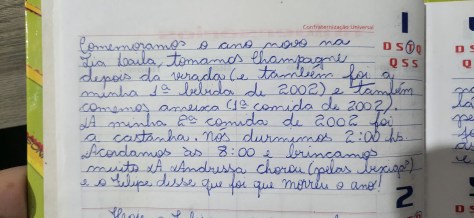 Confraternização Universal
1
Comemoramos o ano novo na
D S T Q
Tia Laila, tomamos Champagne
Q S S
depois da virada (e também foi a
minha 1ª bebida de 2002) e também
comemos ameixa (1ª comida de 2002).
A minha 2ª comida de 2002 foi
a castanha. Nós durmimos 2:00 hs.
Acordamos às 8:00 e brincamos
muito. A Andressa chorou (pelas bexigas)
e o Felipe disse que foi que morreu o ano!
2